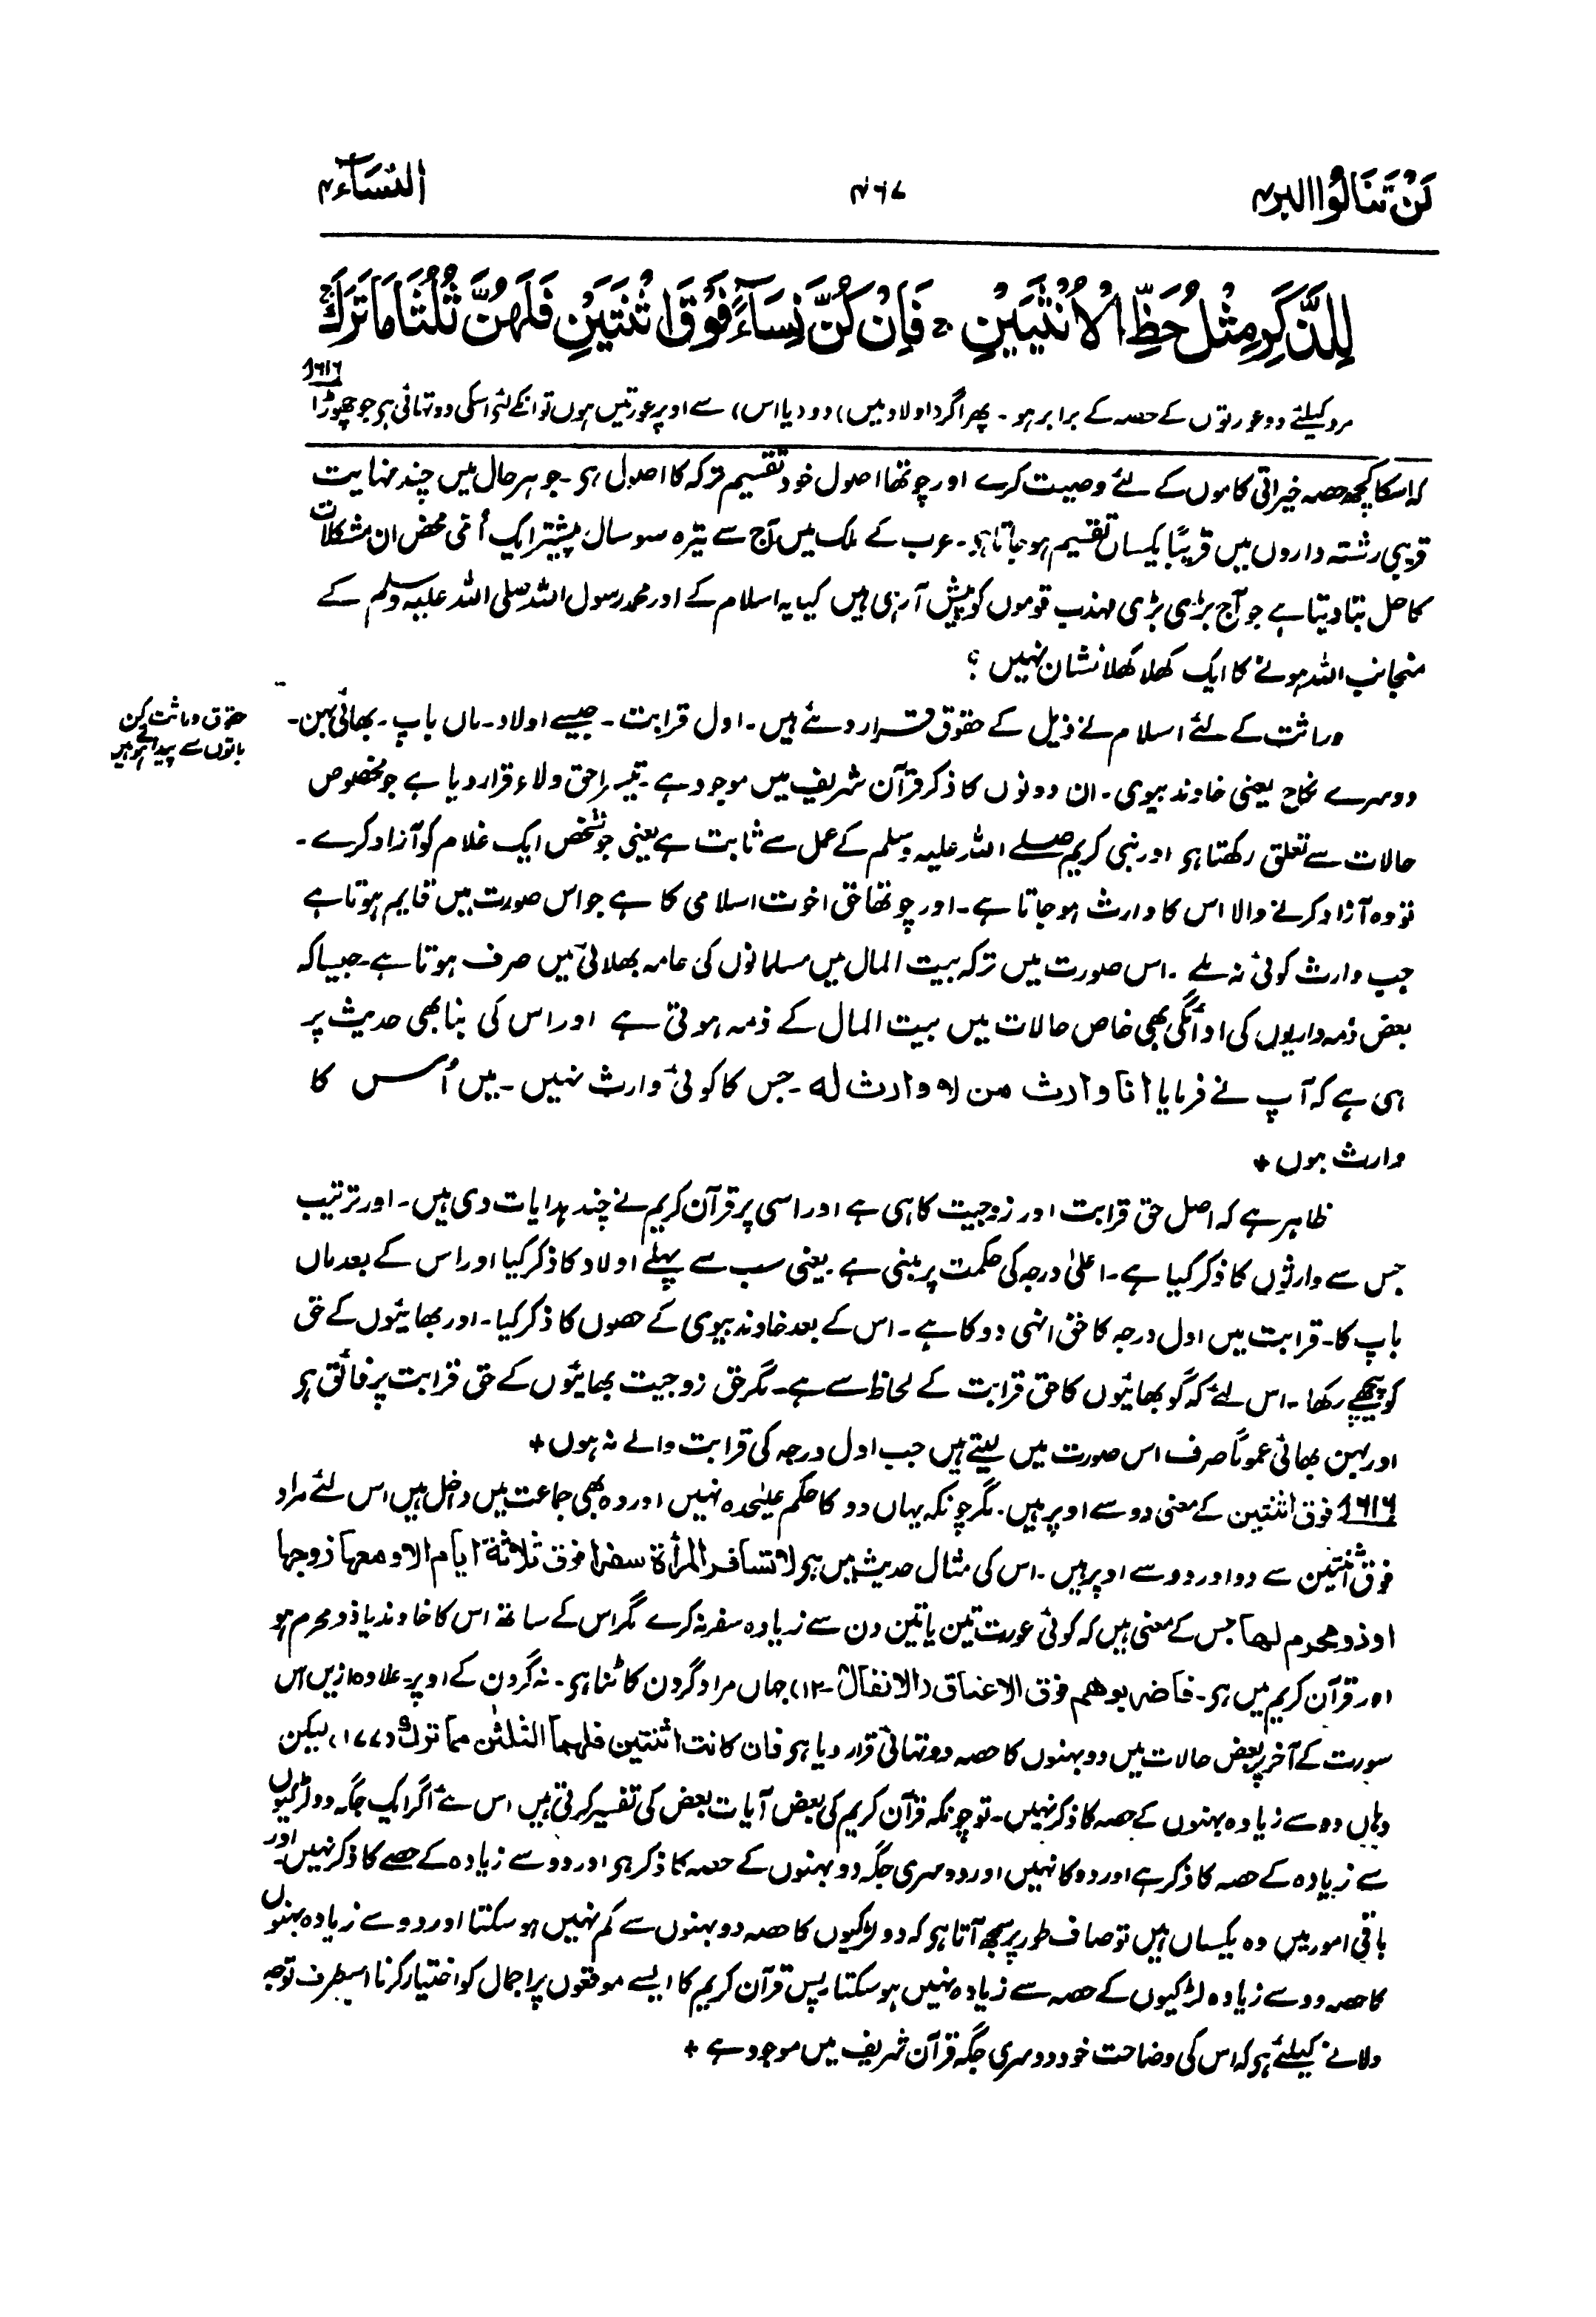 لَنْ تَنَالُوا البر ۴
۴۶۷
النِّسَآء ۴
لِلذَّكَرِ مِثْلُ حَظِّ الْاُنْثَيَيْنِ ۚ فَاِنْ كُنَّ نِسَآءً فَوْقَ اثْنَتَيْنِ فَلَهُنَّ ثُلُثَا مَا تَرَكَ ۚ
۶۱۶
مرد کیلئے دو عورتوں کے حصہ کے برابر ہو ۔ پھر اگر (اولاد میں) دو (یا اس) سے اوپر عورتیں ہوں تو انکے لئے اسکی دو تہائی ہی جو چھوڑا
کہ اسکا کچھ حصہ خیراتی کاموں کے لئے وصیت کرے اور چوتھا اصول خود تقسیم ترکہ کا اصول ہی ۔ جو ہر حال میں چند نہایت
قریبی رشتہ داروں میں قریباً یکساں تقسیم ہو جاتا ہی ۔ عرب کے ملک میں آج سے تیرہ سو سال پیشتر ایک اُمّی محض ان مشکلات
کا حل بتا دیتا ہے جو آج بڑی بڑی مہذب قوموں کو پیش آ رہی ہیں کیا یہ اسلام کے اور محمد رسول اللہ صلی اللہ علیہ وسلم کے
منجانب اللہ ہونے کا ایک کھلا کھلا نشان نہیں ؟
حقوق وراثت کن
باتوں سے پیدا ہوتے ہیں
وراثت کے لئے اسلام نے ذیل کے حقوق قرار دئے ہیں ۔ اول قرابت ۔ جیسے اولاد ۔ ماں باپ ۔ بھائی بہن ۔
دوسرے نکاح یعنی خاوند بیوی ۔ ان دونوں کا ذکر قرآن شریف میں موجود ہے ۔ تیسرا حق ولاء قرار دیا ہے جو مخصوص
حالات سے تعلق رکھتا ہی اور نبی کریم صلے اللہ علیہ وسلم کے عمل سے ثابت ہے یعنی جو شخص ایک غلام کو آزاد کرے ۔
تو وہ آزاد کرنے والا اس کا وارث ہو جاتا ہے ۔ اور چوتھا حق اخوت اسلامی کا ہے جو اس صورت میں قایم ہوتا ہے
جب وارث کوئی نہ ملے ۔ اس صورت میں ترکہ بیت المال میں مسلمانوں کی عامہ بھلائی میں صرف ہوتا ہے ۔ جیسا کہ
بعض ذمہ داریوں کی ادائگی بھی خاص حالات میں بیت المال کے ذمہ ہوتی ہے اور اس کی بنا بھی حدیث پر
ہی ہے کہ آپ نے فرمایا انا وارث من لا وارث لہ ۔ جس کا کوئی وارث نہیں ۔ میں اُس کا
وارث ہوں ✦
ظاہر ہے کہ اصل حق قرابت اور زوجیت کا ہی ہے اور اسی پر قرآن کریم نے چند ہدایات دی ہیں ۔ اور ترتیب
جس سے وارثوں کا ذکر کیا ہے ۔ اعلیٰ درجہ کی حکمت پر مبنی ہے ۔ یعنی سب سے پہلے اولاد کا ذکر کیا اور اس کے بعد ماں
باپ کا ۔ قرابت میں اول درجہ کا حق انہی دو کا ہے ۔ اس کے بعد خاوند بیوی کے حصوں کا ذکر کیا ۔ اور بھائیوں کے حق
کو پیچھے رکھا ۔ اس لئے کہ گو بھائیوں کا حق قرابت کے لحاظ سے ہے ۔ مگر حق زوجیت بھائیوں کے حق قرابت پر فائق ہی
اور بہن بھائی عموماً صرف اس صورت میں لیتے ہیں جب اول درجہ کی قرابت والے نہ ہوں ✦
۶۱۶ فوق اثنتین کے معنی دو سے اوپر ہیں ۔ مگر چونکہ یہاں دو کا حکم علیٰحدہ نہیں اور وہ بھی جماعت میں داخل ہیں اس لئے مراد
فوق اثنتین سے دو اور دو سے اوپر ہیں ۔ اس کی مثال حدیث میں ہی لا تسافر المرأۃ سفرا فوق ثلاثۃ ایام الا و معہا زوجہا
او ذو محرم لھا جس کے معنی ہیں کہ کوئی عورت تین یا تین دن سے زیادہ سفر نہ کرے مگر اس کے ساتھ اس کا خاوند یا ذو محرم ہو
اور قرآن کریم میں ہی ۔ فاضربوھم فوق الاعناق (الانفال ۸ ۔ ۱۲) جہاں مراد گردن کاٹنا ہی ۔ نہ گردن کے اوپر ۔ علاوہ ازیں اس
سورت کے آخر پر بعض حالات میں دو بہنوں کا حصہ دو تہائی قرار دیا ہی فان کانت اثنتین فلہما الثلثٰن مما ترک (۱۷۷) لیکن
وہاں دو سے زیادہ بہنوں کے حصہ کا ذکر نہیں ۔ تو چونکہ قرآن کریم کی بعض آیات بعض کی تفسیر کرتی ہیں اس لئے اگر ایک جگہ دو لڑکیوں
سے زیادہ کے حصہ کا ذکر ہے اور دو کا نہیں اور دوسری جگہ دو بہنوں کے حصہ کا ذکر ہی اور دو سے زیادہ کے حصے کا ذکر نہیں ۔ اور
باقی امور میں وہ یکساں ہیں تو صاف طور پر سمجھ آتا ہی کہ دو لڑکیوں کا حصہ دو بہنوں سے کم نہیں ہو سکتا اور دو سے زیادہ بہنوں
کا حصہ دو سے زیادہ لڑکیوں کے حصہ سے زیادہ نہیں ہو سکتا پس قرآن کریم کا ایسے موقعوں پر اجمال کو اختیار کرنا اسیطرف توجہ
دلانے کیلئے ہی کہ اس کی وضاحت خود دوسری جگہ قرآن شریف میں موجود ہے ✦